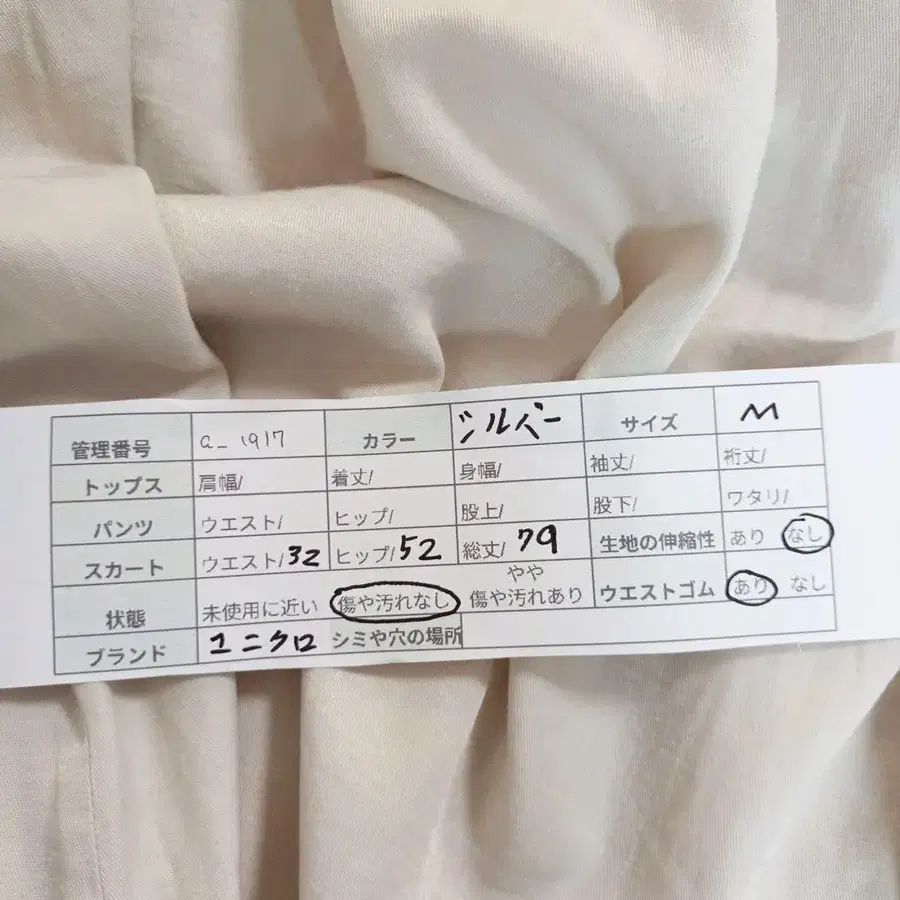 管理番号 a_1917 カラー シルバー サイズ M
トップス 肩幅/ 着丈/ 身幅/ 袖丈/ 裄丈/
パンツ ウエスト/ ヒップ/ 股上/ 股下/ ワタリ/
スカート ウエスト/32 ヒップ/52 総丈/79 生地の伸縮性 あり なし
状態 未使用に近い 傷や汚れなし やや傷や汚れあり ウエストゴム あり なし
ブランド ユニクロ シミや穴の場所